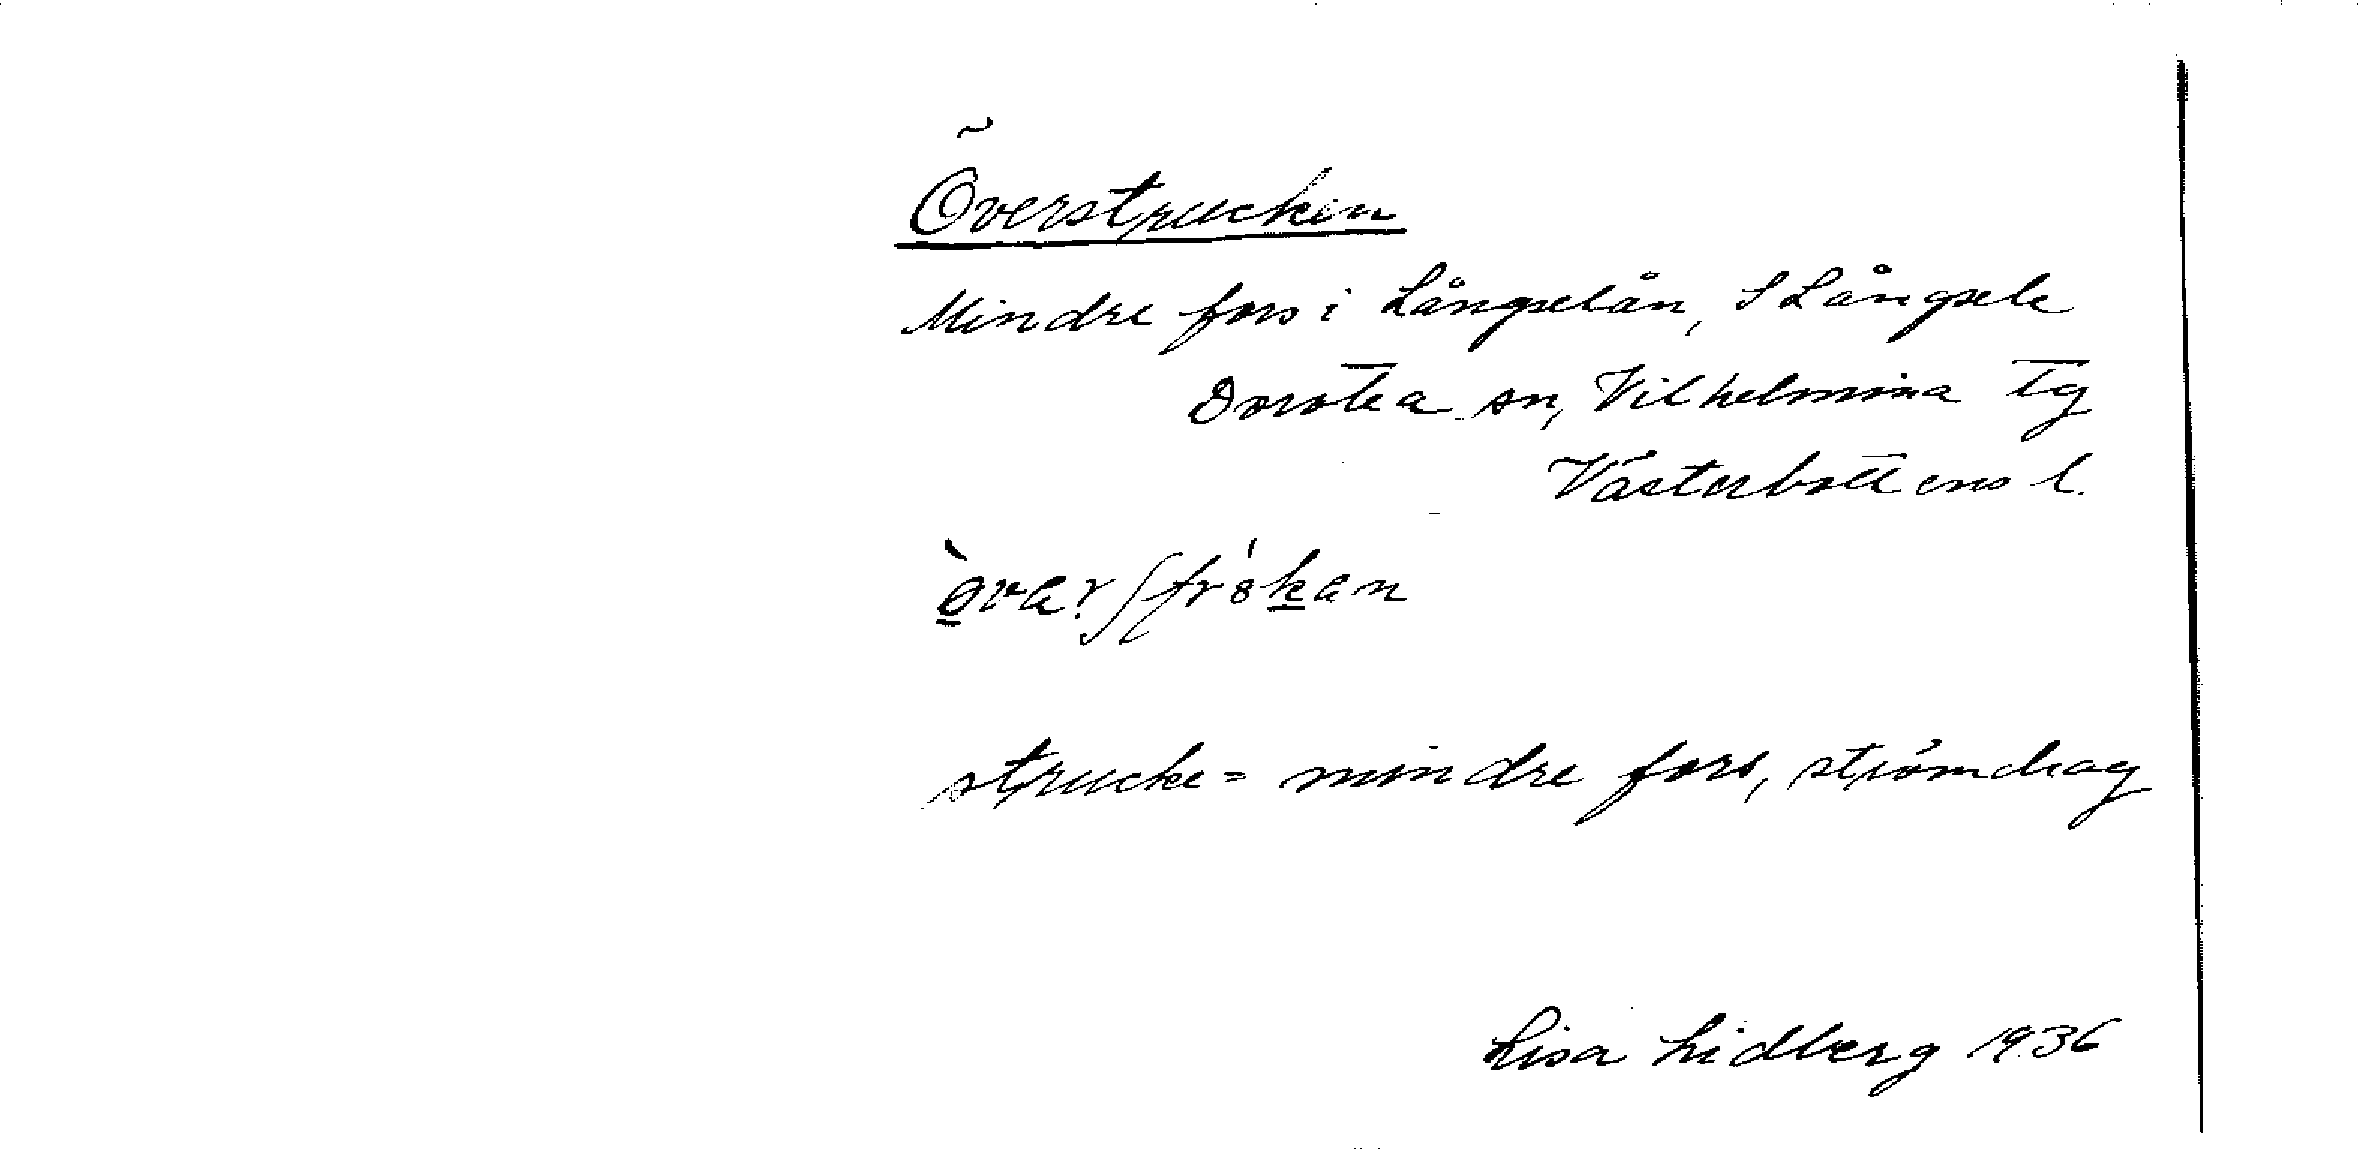 Överstrucken
Mindre fors i Långselån, S Långsele
Dorotea sn, Vilhelmina tg
Västerbottens l.
strucke = mindre fors, strömdrag
Lisa Lidberg 1936